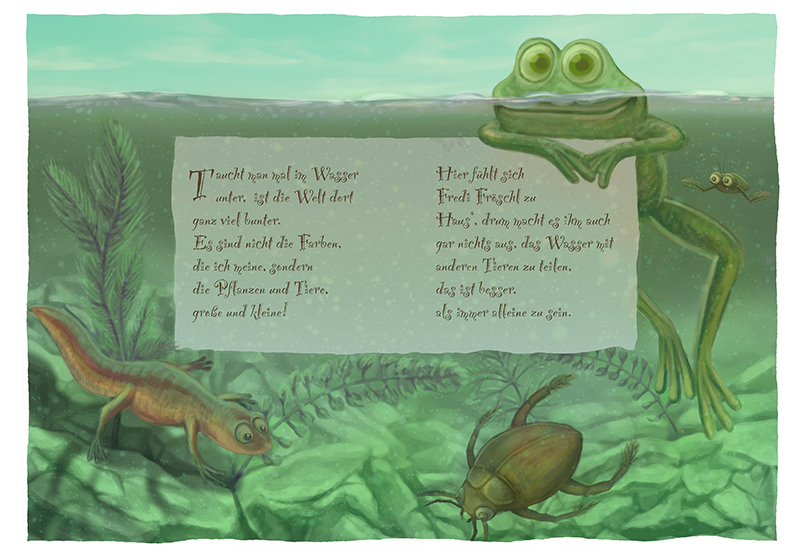 Taucht man mal im Wasser
unter, ist die Welt dort
ganz viel bunter.
Es sind nicht die Farben,
die ich meine, sondern
die Pflanzen und Tiere,
große und kleine!
Hier fühlt sich
Fredi Fröschl zu
Haus', drum macht es ihm auch
gar nichts aus, das Wasser mit
anderen Tieren zu teilen,
das ist besser,
als immer alleine zu sein.